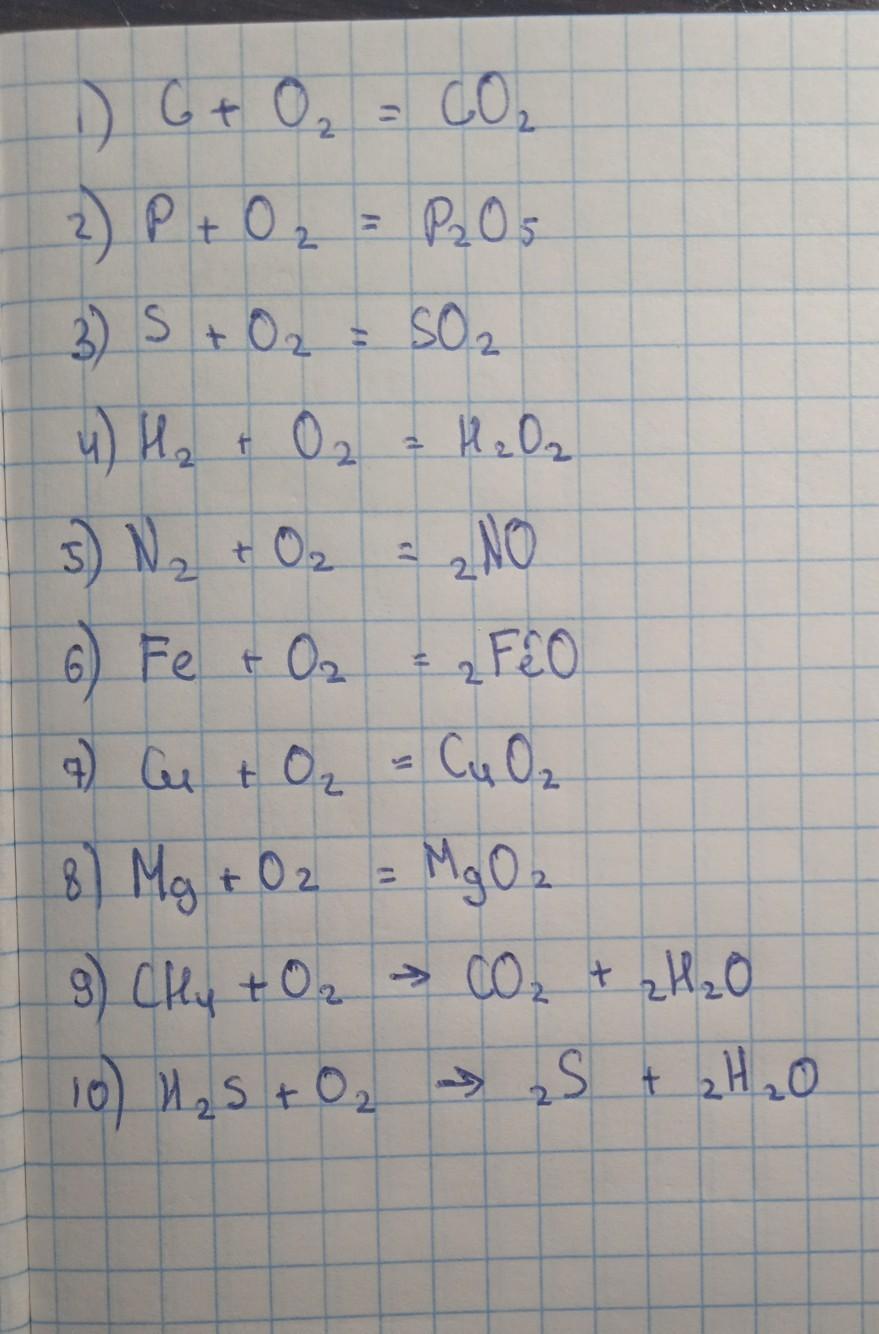 1) C + O₂ = CO₂
2) P + O₂ = P₂O₅
3) S + O₂ = SO₂
4) H₂ + O₂ = H₂O₂
5) N₂ + O₂ = ₂NO
6) Fe + O₂ = ₂FeO
7) Cu + O₂ = CuO₂
8) Mg + O₂ = MgO₂
9) CH₄ + O₂ → CO₂ + ₂H₂O
10) H₂S + O₂ → ₂S + ₂H₂O